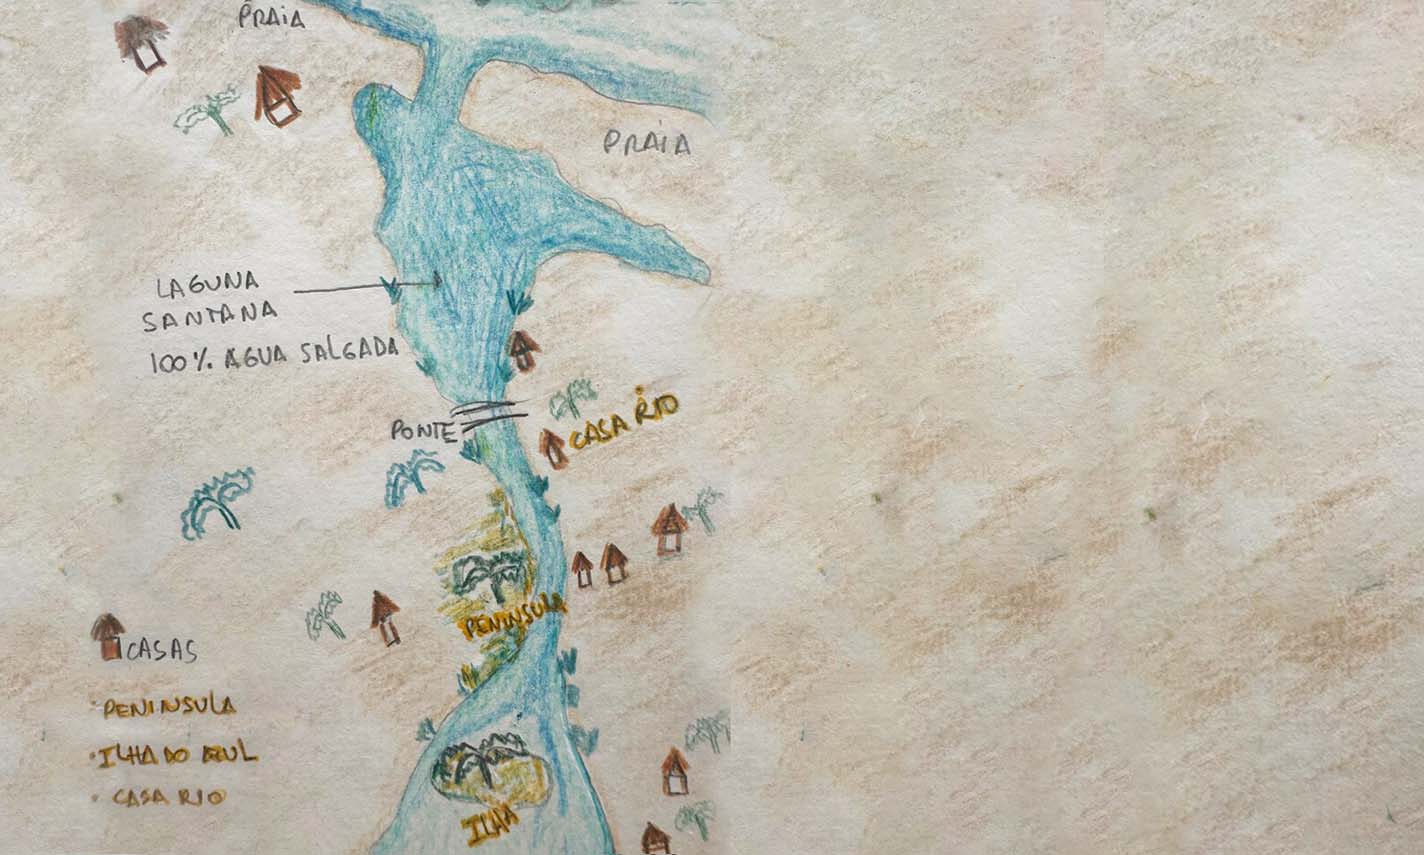 PRAIA
PRAIA
LAGUNA
SANTANA
100% AGUA SALGADA
PONTE
CASA RIO
PENINSULA
CASAS
PENINSULA
ILHA DO AZUL
CASA RIO
ILHA